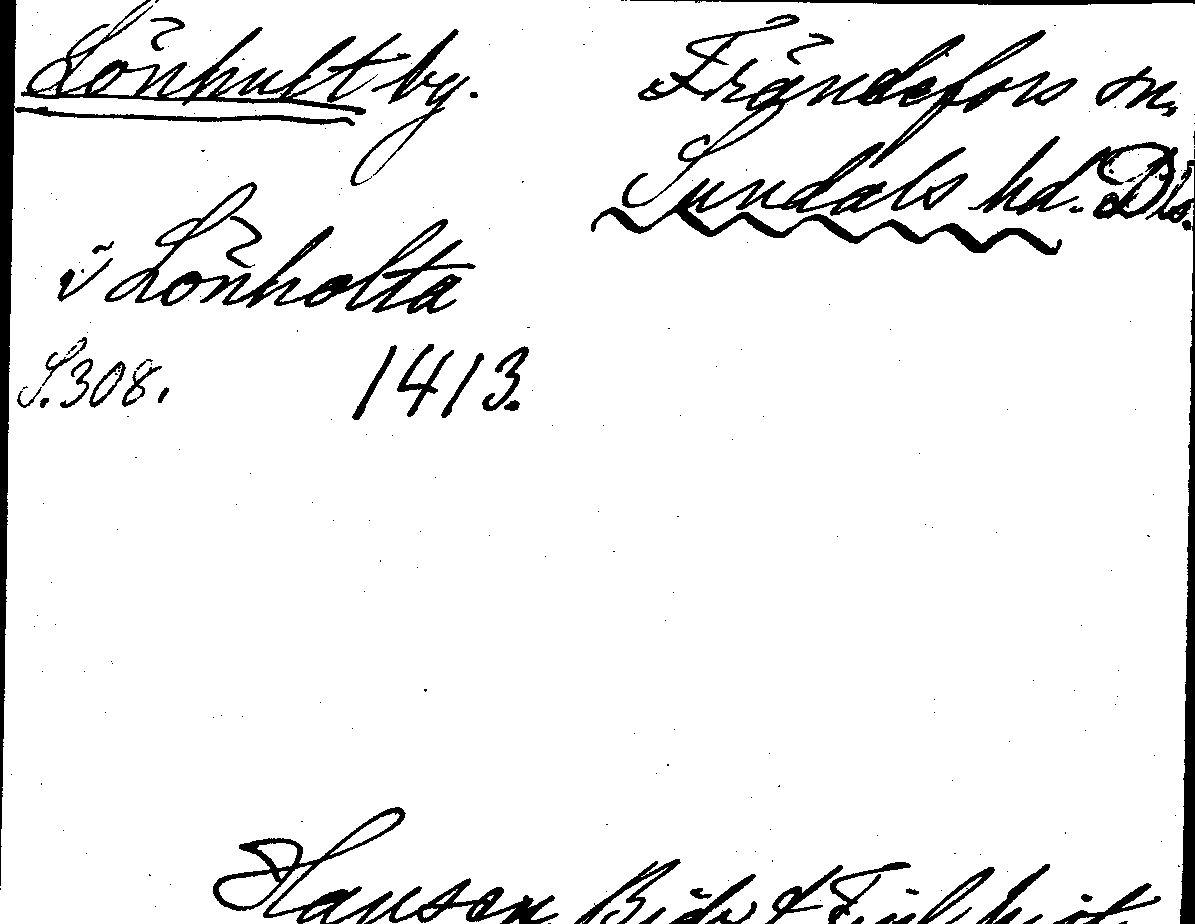 Lönhult by.
Frändefors sn,
Sundals hd. Dls.
i Lönholta
S. 308. 1413.
Hausen Bidr t Finl hist